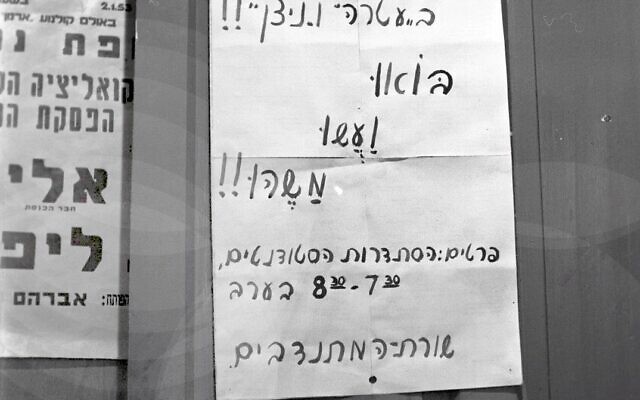 2.1.53
באולם קולנוע
קואליציה
הפסקת
אלי
חבר הכנסת
ליפ
אברהם
ב״עטרה״ ו„ניצן״!!
בּוֹאוּ
וַעֲשׂוּ
מַשֶׁהוּ!!
פרטים: הסתדרות הסטודנטים,
7³⁰-8³⁰ בערב
שורת-המתנדבים.